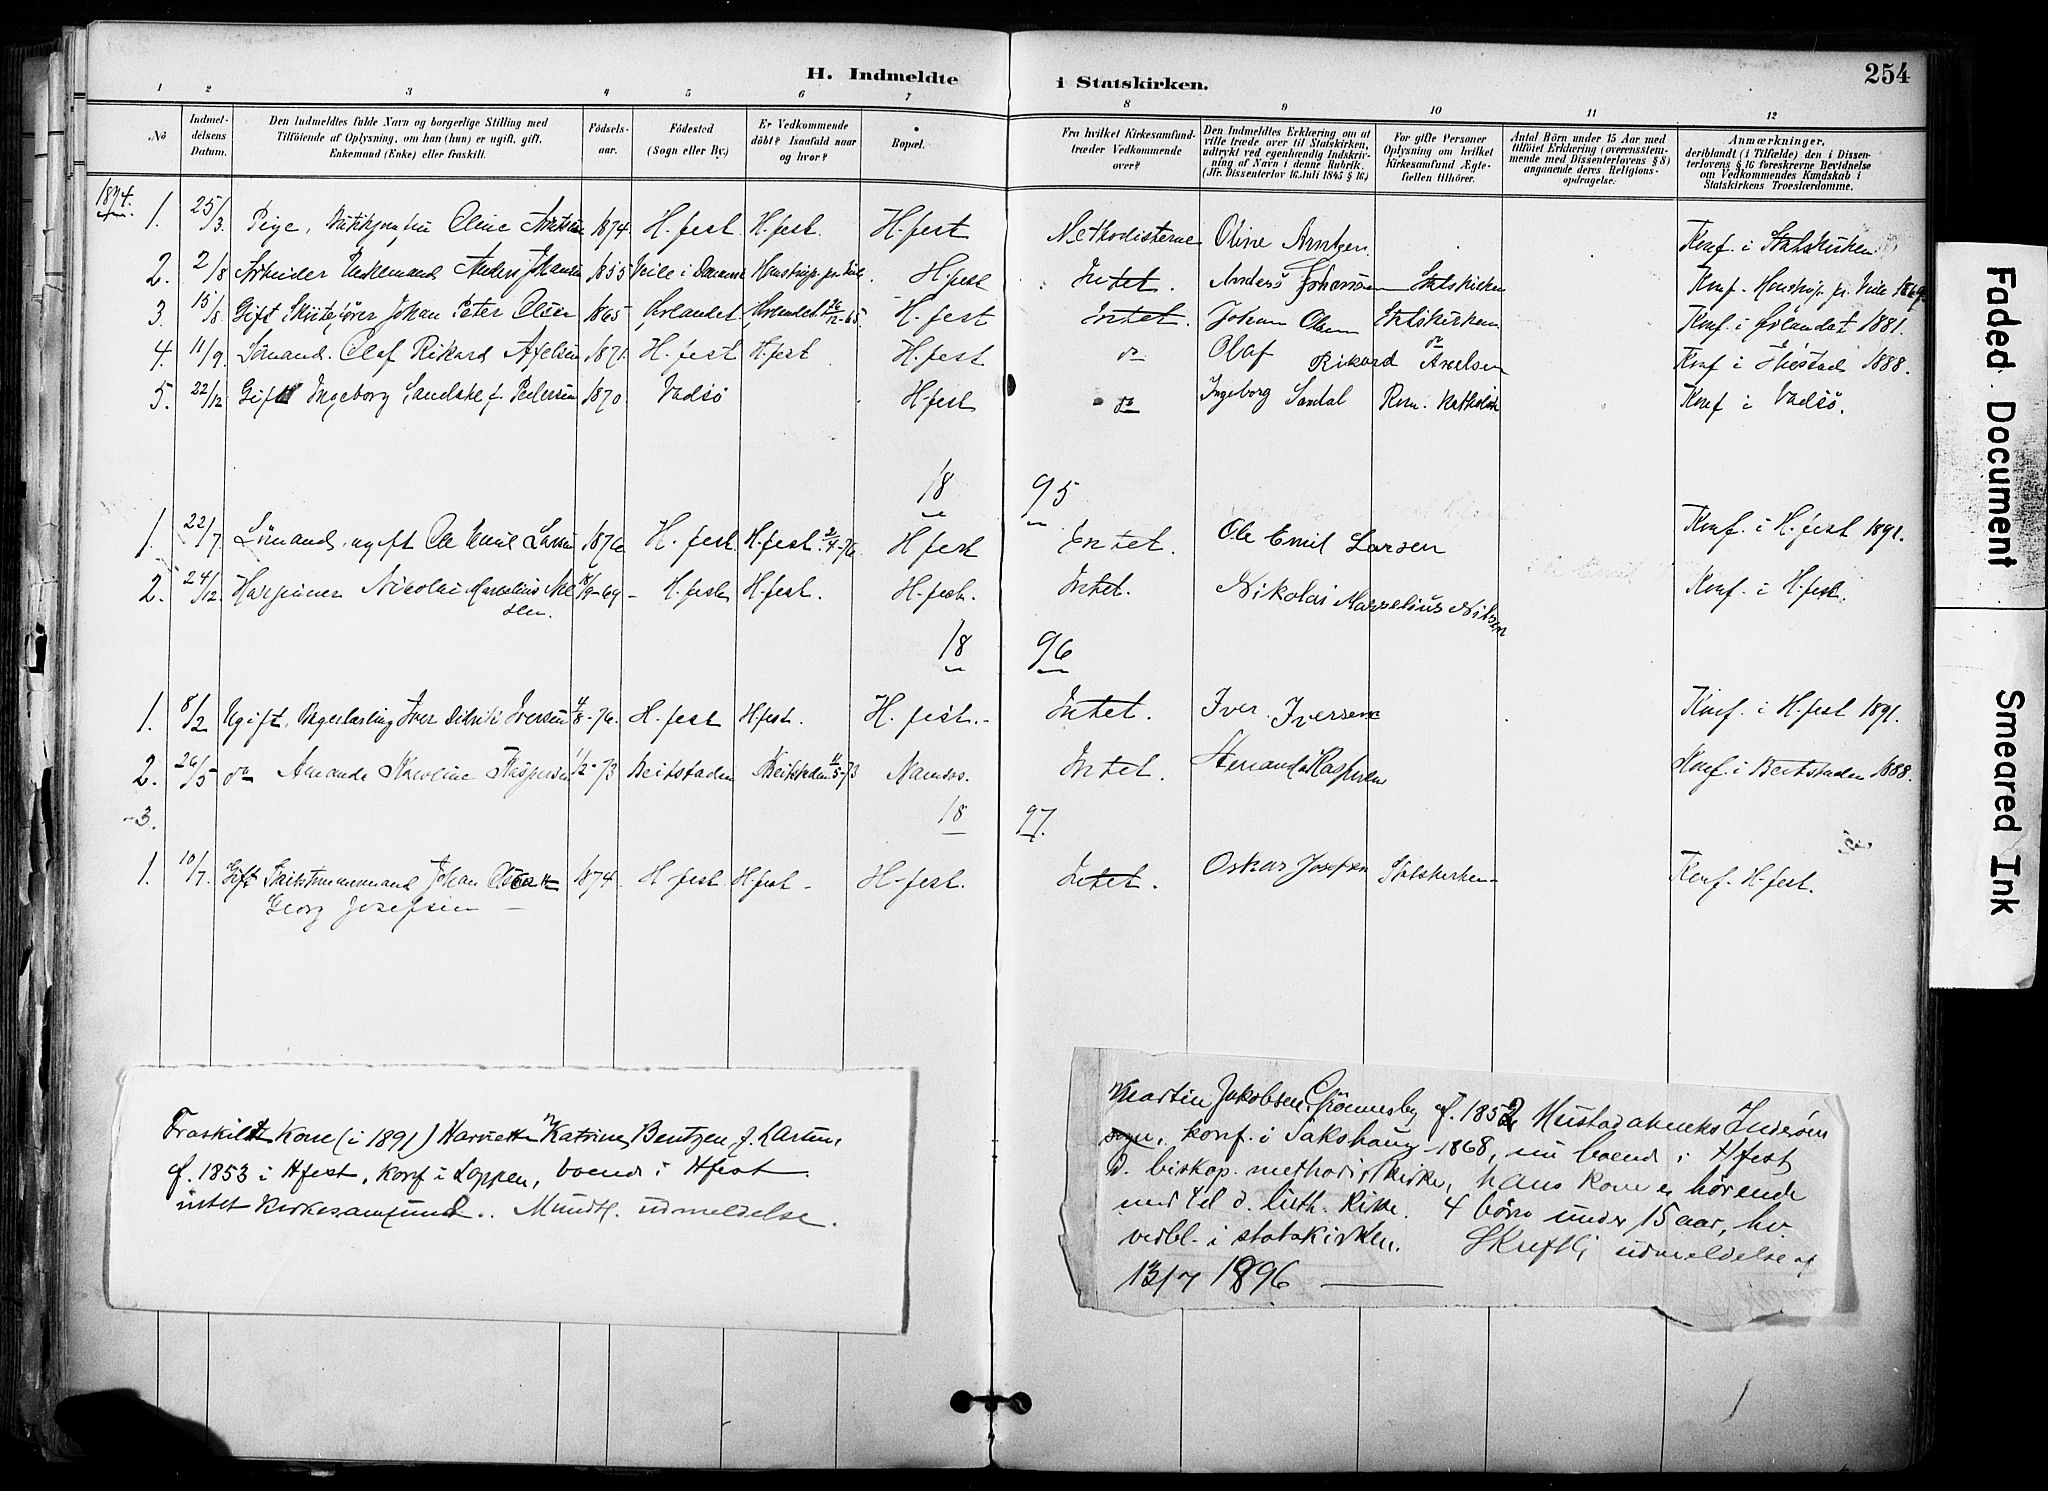 H. Indmeldte i Statskirken. 254
1 2 3 4 5 6 7 8 9 10 11 12
No
Indmeldelsens Datum.
Den Indmeldtes fulde Navn og borgerlige Stilling med Tilföiende af Oplysning, om han (hun) er ugift, gift, Enkemand (Enke) eller fraskilt.
Födselsaar.
Födested (Sogn eller By.)
Er Vedkommende döbt? Isaafald naar og hvor?
Bopæl.
Fra hvilket Kirkesamfund træder Vedkommende over?
Den Indmeldtes Erklæring om at ville træde over til Statskirken, udtrykt ved egenhændig Indskrivning af Navn i denne Rubrik. (Jfr. Dissenterlov 16. Juli 1845 § 16.)
For gifte Personer Oplysning om hvilket Kirkesamfund Ægtefællen tilhörer.
Antal Börn under 15 Aar med tilföiet Erklæring (overensstemmende med Dissenterlovens § 8) angaaende deres Religionsopdragelse.
Anmærkninger, deriblandt (i Tilfælde) den i Dissenterlovens § 16 foreskrevne Bevidnelse om Vedkommendes Kundskab i Statskirkens Troeslærdomme.
1894.
1. 25/3 Pige, Oline Arntsen 1874 H.fest H.fest. H.fest Methodisterne Oline Arntzen Konf. i Statskirken
2. 2/8 Arbeider Anders Johansen 1855 Veile i Danm. H.fest Intet. Anders Johansen Statskirken Konf.
3. 15/8 Gift Johan Peter Olsen 1865 Ørlandet Ørlandet 26/12-65. H.fest Intet. Johan Olsen Statskirken Konf. i Ørlandet 1881.
4. 11/9. Sömand. Olaf Rikard Axelsen 1871. H.fest H.fest H.fest do Olaf Rikard Axelsen do Konf i 1888.
5. 22/12 Gift Ingeborg f. Pedersen 1870 Vadsö H.fest do Ingeborg Sandal Rom. Katholsk Konf i Vadsö.
18 95
1. 22/7 Sömand, ugift Ole Emil Larsen 1876 H.fest H.fest. 2/4-76 H.fest Intet. Ole Emil Larsen Konf. i H.fest 1891.
2. 24/12 Harpuner Nicolai Marselius Nilssen. 18/9-69 H.fest H.fest. H.fest. Intet. Nikolai Marselius Nilsen Konf. i H.fest.
18 96
1. 8/2 Ugift, Bagerlærling Iver Didrik Iversen 4/8-76. H.fest H.fest. H.fest. Intet. Iver Iversen Konf. i H.fest 1891.
2. 26/5 do Amanda Karoline Kaspersen 1/2-73 Beitstaden Beitstaden 4/5-73 Namsos. Intet. Konf. i Beitstaden 1888.
3.
18 97.
1. 10/7. Gift Johan Oscar Georg Josefsen 1874. H.fest. H.fest H.fest. Intet. Oskar Josefsen Statskirken Konf. H.fest.
Fraskilt Kone (i 1891) Katrine Bentzen f. Larsen,
f. 1853 i Hfest, konf i Loppen, boende i Hfest
intet Kirkesamfund. Mundtl. udmeldelse.
Martin Jakobsen Grönnesby f. 1852 Inderöen
sogn, konf. i Sakshaug 1868, nu boende i Hfest
d. biskop. methodistkirke, hans kone er hörende
ned til d. luth. Kirke. 4 börn under 15 aar, hv.
vedbl. i statskirken. Skriftli udmeldelse af
13/7 1896
Faded Document
Smeared Ink